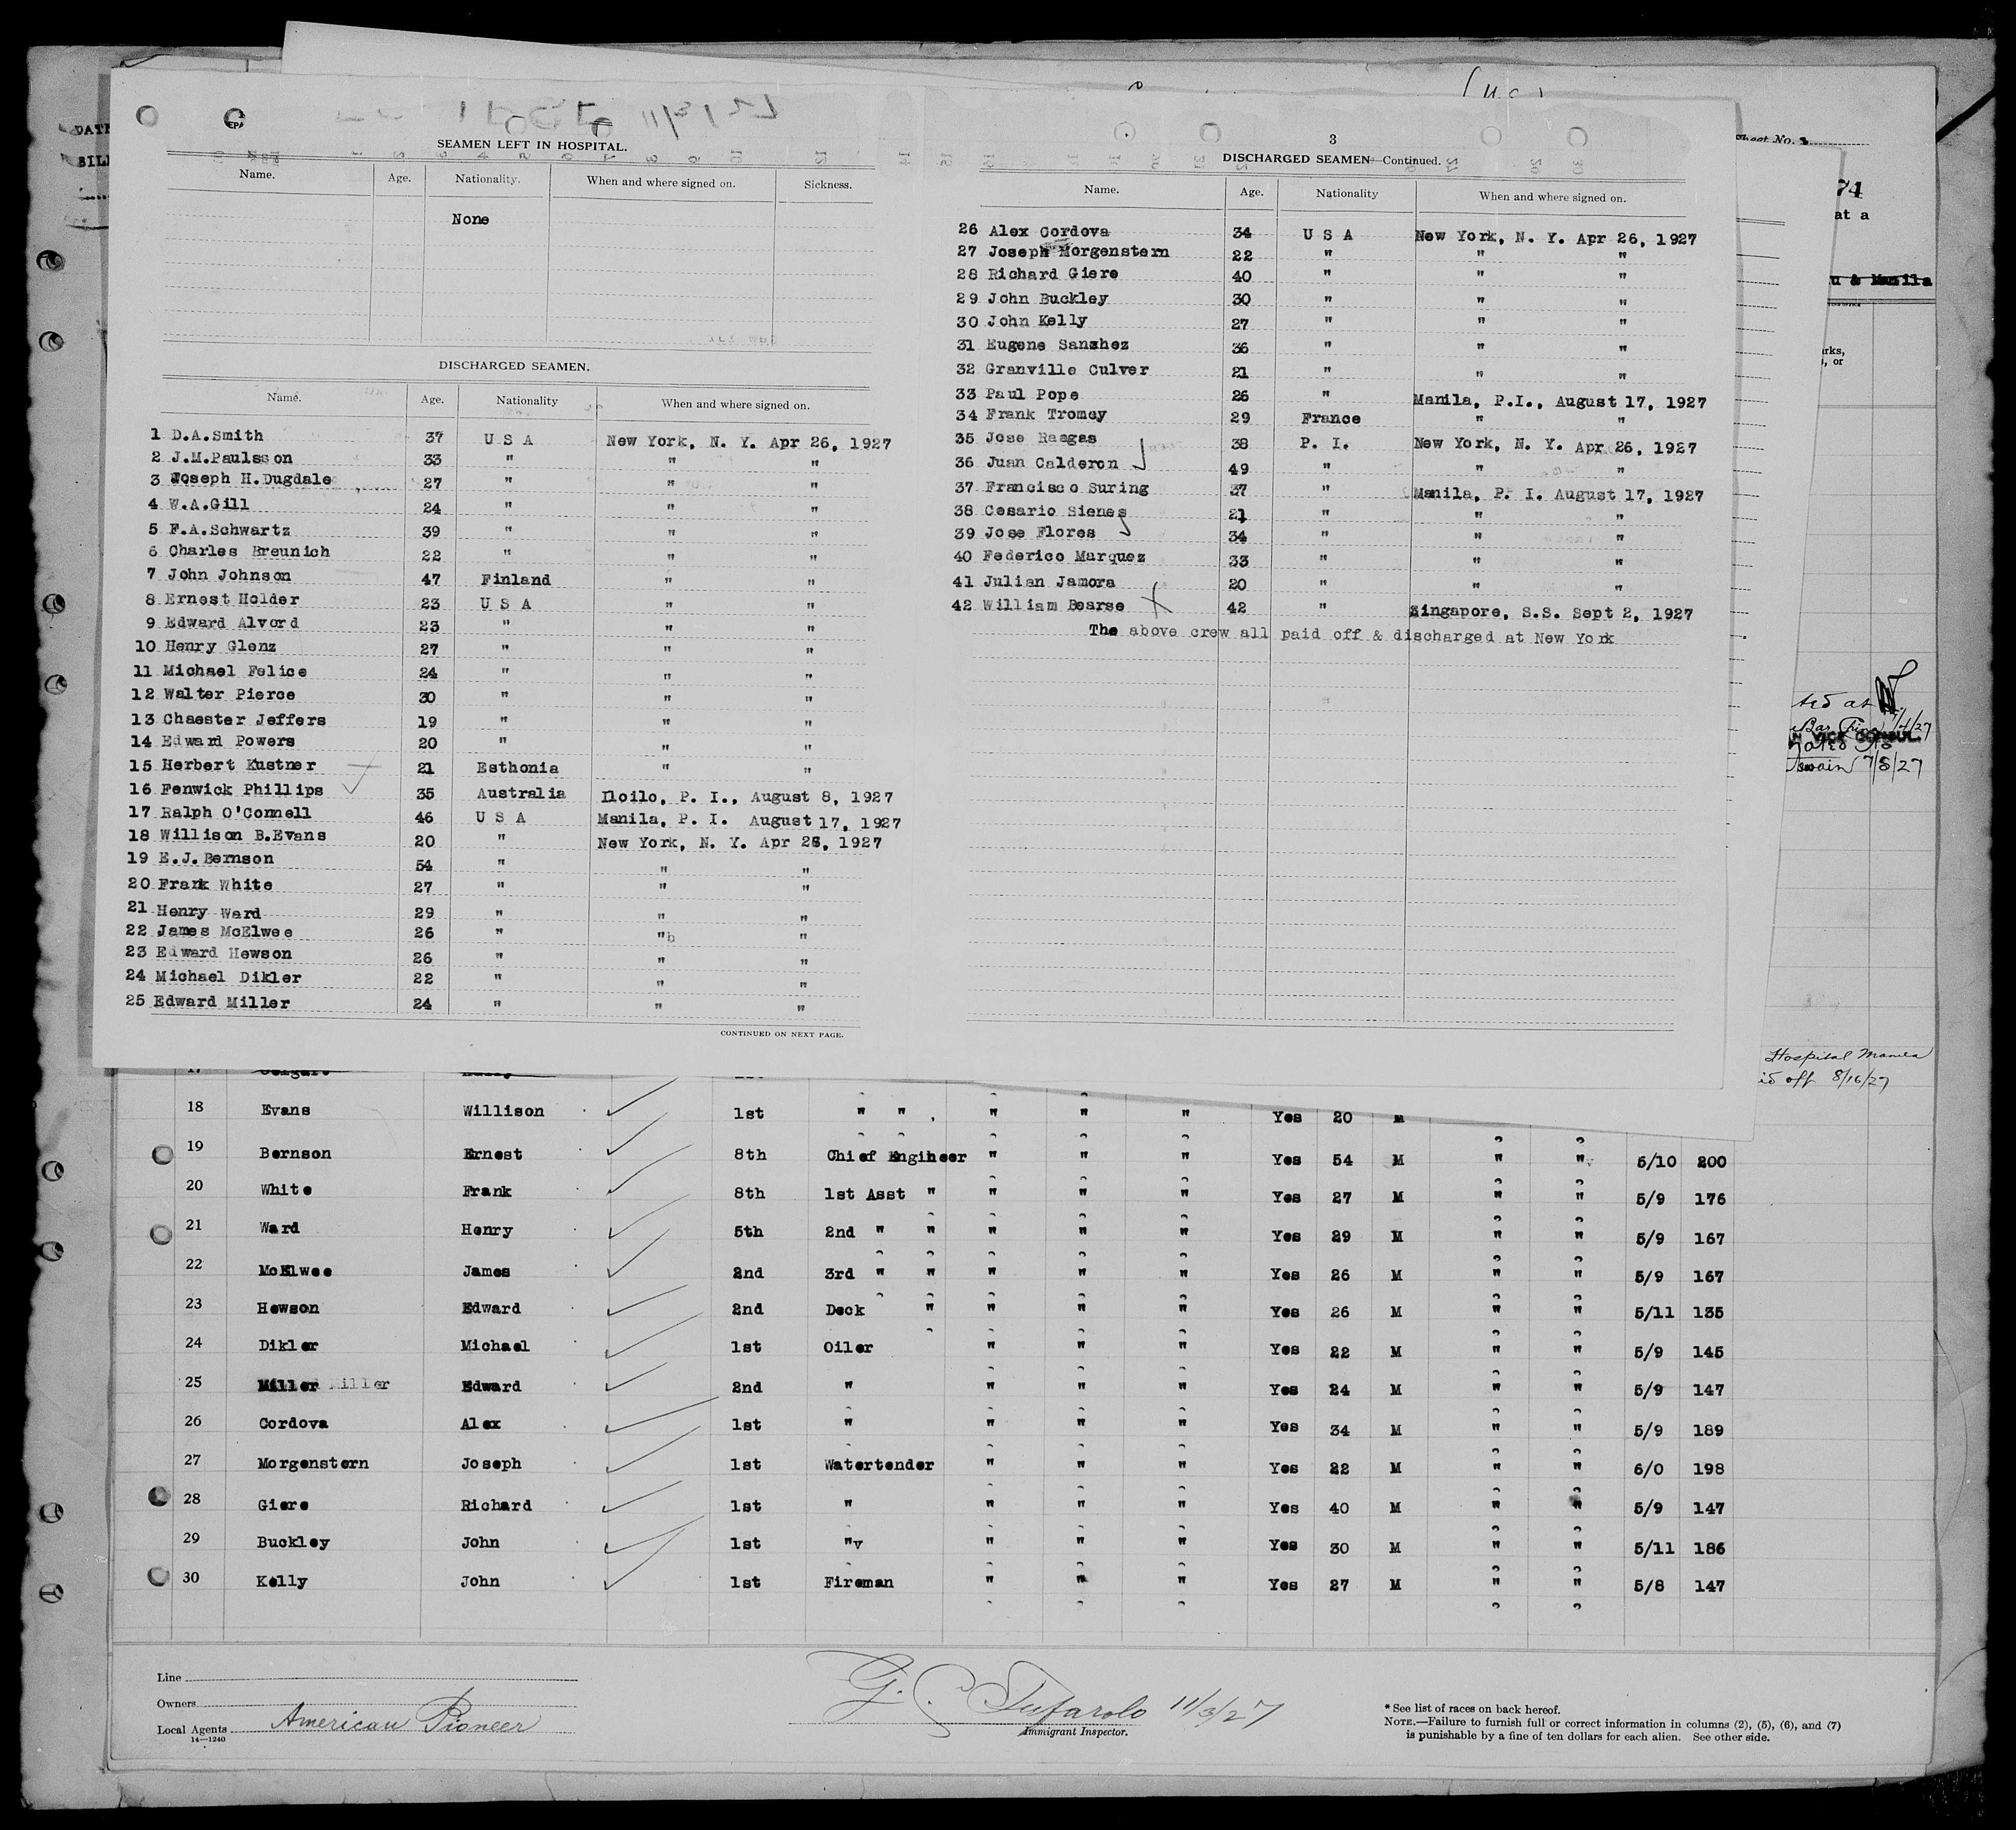 SEAMEN LEFT IN HOSPITAL.
Name. Age. Nationality. When and where signed on. Sickness.
None
DISCHARGED SEAMEN.
Name. Age. Nationality When and where signed on.
1 D.A.Smith 37 U S A New York, N. Y. Apr 26, 1927
2 J.M.Paulsson 33 " " "
3 Joseph H.Dugdale 27 " " "
4 W.A.Gill 24 " " "
5 F.A.Schwartz 39 " " "
6 Charles Breunich 22 " " "
7 John Johnson 47 Finland " "
8 Ernest Holder 23 U S A " "
9 Edward Alvord 23 " " "
10 Henry Glenz 27 " " "
11 Michael Felice 24 " " "
12 Walter Pierce 30 " " "
13 Chaester Jeffers 19 " " "
14 Edward Powers 20 " " "
15 Herbert Kustner 21 Esthonia " "
16 Fenwick Phillips 35 Australia Iloilo, P. I., August 8, 1927
17 Ralph O'Connell 46 U S A Manila, P. I. August 17, 1927
18 Willison B.Evans 20 " New York, N. Y. Apr 26, 1927
19 E.J.Bernson 54 " " "
20 Frank White 27 " " "
21 Henry Ward 29 " " "
22 James McElwee 26 " "b "
23 Edward Hewson 26 " " "
24 Michael Dikler 22 " " "
25 Edward Miller 24 " " "
CONTINUED ON NEXT PAGE.
3
DISCHARGED SEAMEN—Continued.
Name. Age. Nationality When and where signed on.
26 Alex Cordova 34 U S A New York, N. Y. Apr 26, 1927
27 Joseph Morgenstern 22 " " "
28 Richard Giere 40 " " "
29 John Buckley 30 " " "
30 John Kelly 27 " " "
31 Eugene Sanzhez 36 " " "
32 Granville Culver 21 " " "
33 Paul Pope 26 " Manila, P.I., August 17, 1927
34 Frank Tromey 29 France " "
35 Jose Raagas 38 P. I. New York, N. Y. Apr 26, 1927
36 Juan Calderon 49 " " "
37 Francisco Suring 37 " Manila, P. I. August 17, 1927
38 Cesario Sienes 21 " " "
39 Jose Flores 34 " " "
40 Federico Marquez 33 " " "
41 Julian Jamora 20 " " "
42 William Bearse 42 " Singapore, S.S. Sept 2, 1927
The above crew all paid off & discharged at New York
Sheet No.
74
at a
u & Manila
rks,
, or
at
7/4/27
VICE CONSUL
7/8/27
Hospital Manila
off 8/16/27
17
18 Evans Willison 1st " " " " " Yes 20 M
19 Bernson Ernest 8th Chief Engineer " " " Yes 54 M " " 5/10 200
20 White Frank 8th 1st Asst " " " " Yes 27 M " " 5/9 176
21 Ward Henry 5th 2nd " " " " " Yes 29 M " " 5/9 167
22 McElwee James 2nd 3rd " " " " " Yes 26 M " " 5/9 167
23 Hewson Edward 2nd Deck " " " " Yes 26 M " " 5/11 135
24 Dikler Michael 1st Oiler " " " Yes 22 M " " 5/9 145
25 Miller Miller Edward 2nd " " " " Yes 24 M " " 5/9 147
26 Cordova Alex 1st " " " " Yes 34 M " " 5/9 189
27 Morgenstern Joseph 1st Watertender " " " Yes 22 M " " 6/0 198
28 Giere Richard 1st " " " " Yes 40 M " " 5/9 147
29 Buckley John 1st "v " " " Yes 30 M " " 5/11 186
30 Kelly John 1st Fireman " " " Yes 27 M " " 5/8 147
Line
Owners
Local Agents American Pioneer
14—1240
G. Tufarolo 11/3/27
Immigrant Inspector.
* See list of races on back hereof.
NOTE.—Failure to furnish full or correct information in columns (2), (5), (6), and (7)
is punishable by a fine of ten dollars for each alien. See other side.